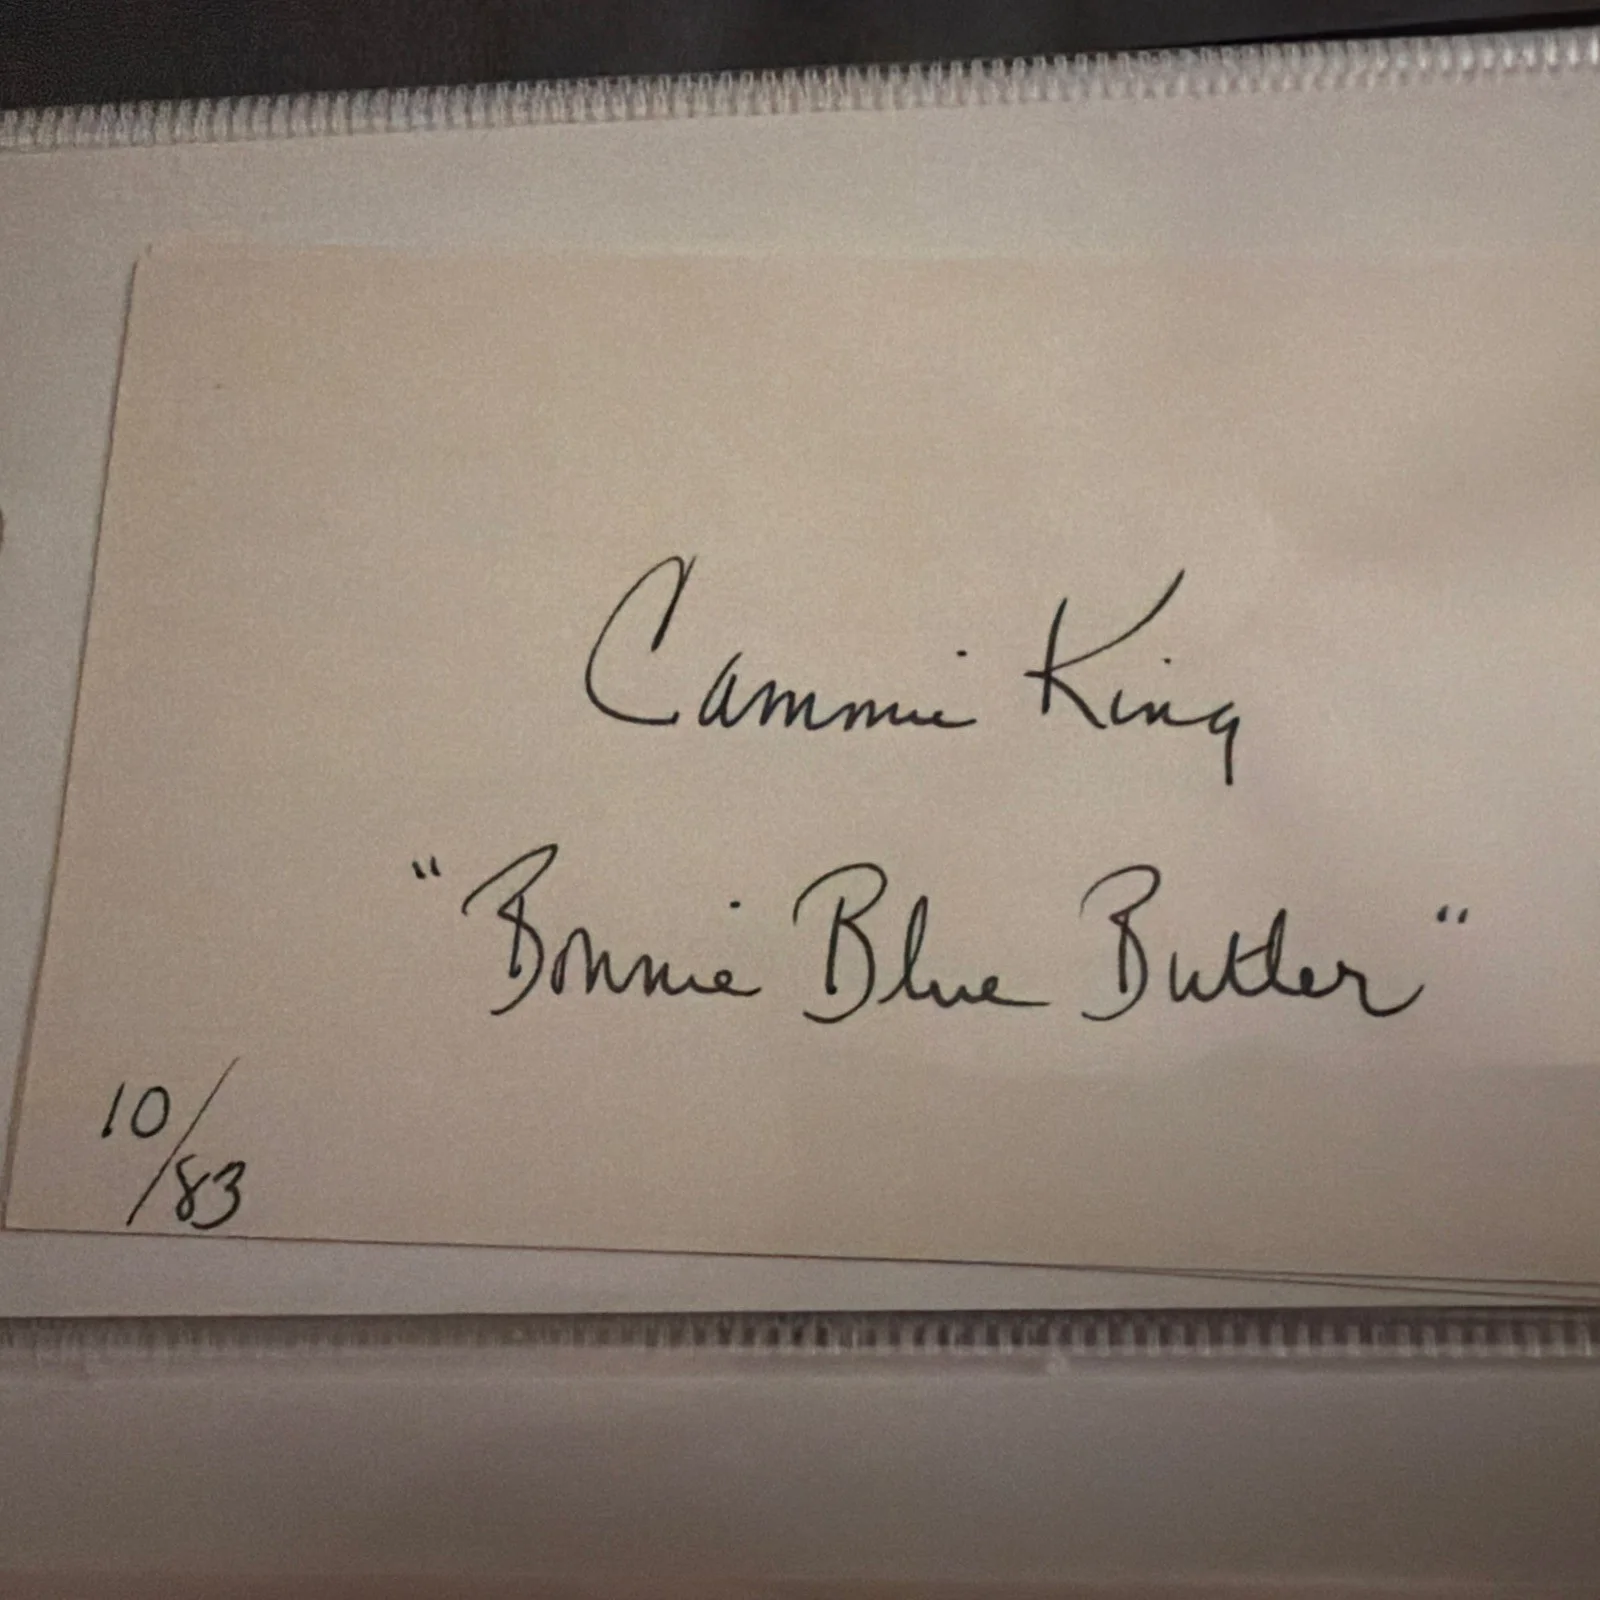 Cammie King
"Bonnie Blue Butler"
10/83